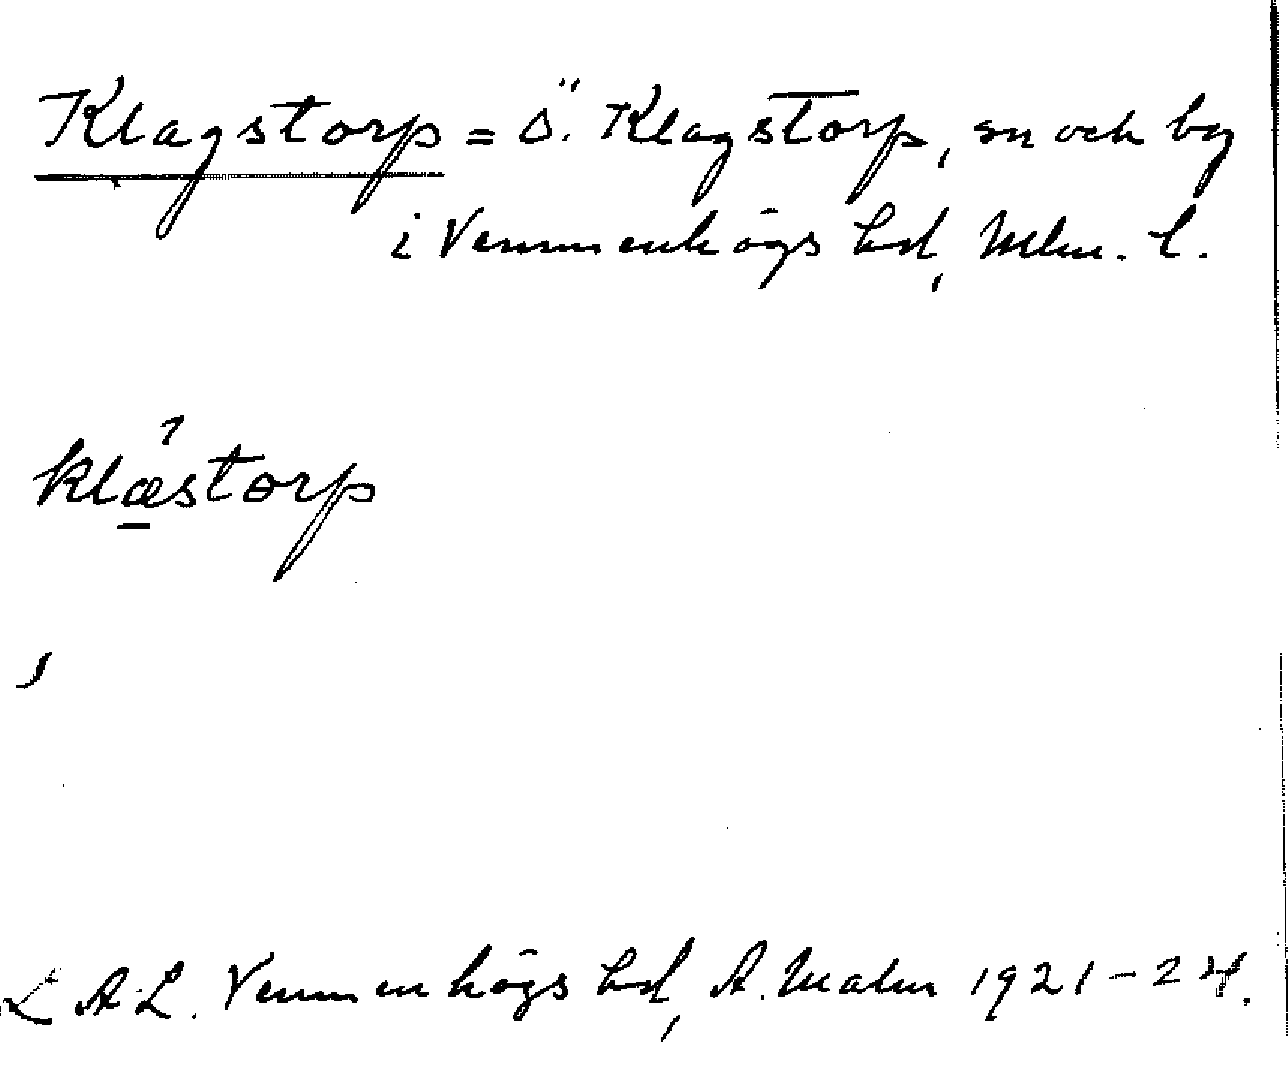 Klagstorp = Ö. Klagstorp, sn och by
i Vemmenhögs hd, Mlm. l.
klæstorp
L A L. Vemmenhögs hd, A. Malm 1921-24.